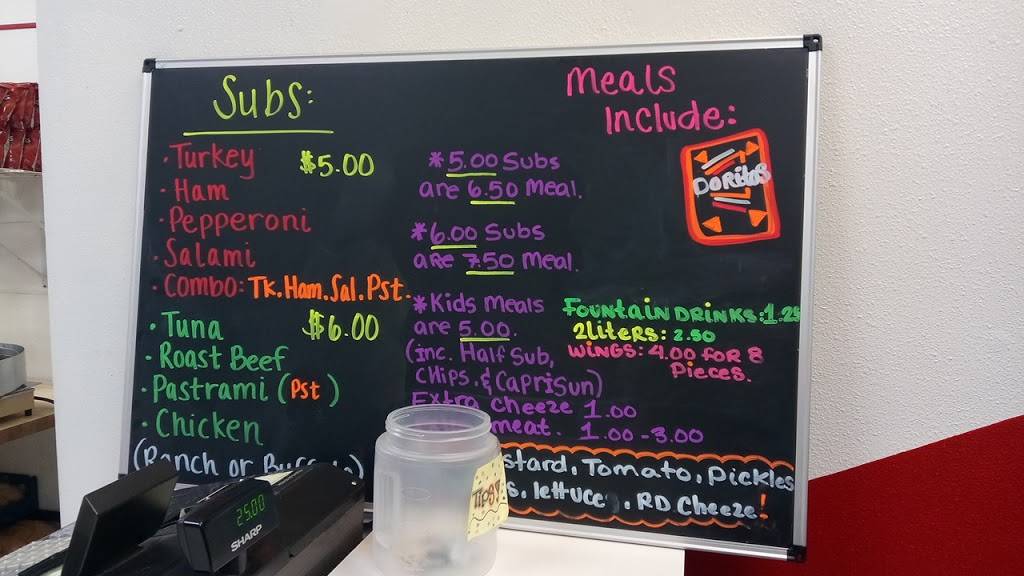 Subs:
• Turkey $5.00
• Ham
• Pepperoni
• Salami
• Combo: Tk.Ham.Sal.Pst.
• Tuna $6.00
• Roast Beef
• Pastrami (Pst)
• Chicken
(Ranch or
Meals
Include:
Doritos
*5.00 Subs
are 6.50 Meal.
*6.00 Subs
are 7.50 Meal.
*Kids Meals
are 5.00.
(inc. Half Sub,
Chips. & Caprisun)
Extra Cheeze 1.00
meat. 1.00-3.00
Fountain Drinks: 1.25
2liters: 2.50
Wings: 4.00 for 8
Pieces.
stard, Tomato, Pickles
s, lettuce, RD Cheeze!
Tips
2500
SHARP